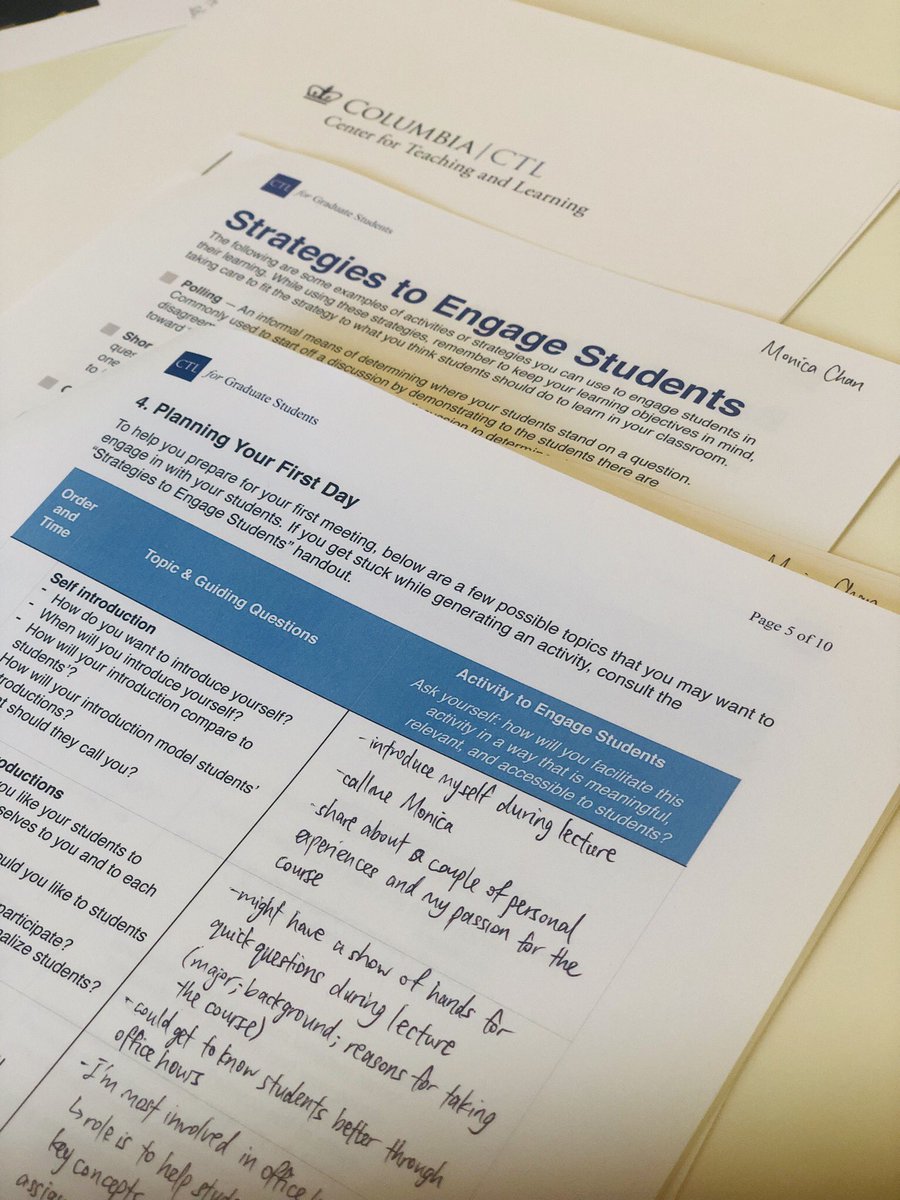 COLUMBIA | CTL
Center for Teaching and Learning
CTL for Graduate Students
Strategies to Engage Students
The following are some examples of activities or strategies you can use to engage students in
their learning. While using these strategies, remember to keep your learning objectives in mind,
taking care to fit the strategy to what you think students should do to learn in your classroom.
Monica Chan
Polling — An informal means of determining where your students stand on a question.
Commonly used to start off a discussion by demonstrating to the students there are
disagreem
toward
Shor
ques
one
to
CTL for Graduate Students
Monica Chan
Page 5 of 10
4. Planning Your First Day
To help you prepare for your first meeting, below are a few possible topics that you may want to
engage in with your students. If you get stuck while generating an activity, consult the
"Strategies to Engage Students" handout.
Order
and
Time
Topic & Guiding Questions
Activity to Engage Students
Ask yourself: how will you facilitate this
activity in a way that is meaningful,
relevant, and accessible to students?
Self introduction
- How do you want to introduce yourself?
- When will you introduce yourself?
- How will your introduction compare to
students'?
How will your introduction model students'
troductions?
at should they call you?
- introduce myself during lecture
- call me Monica
- share about a couple of personal
experiences and my passion for the
course
oductions
you like your students to
selves to you and to each
ould you like to students
participate?
nalize students?
- might have a show of hands for
quick questions during lecture
(major; background; reasons for taking
the course)
- could get to know students better through
office hours
- I'm most involved in office h
↳ role is to help stude
key concepts
assig